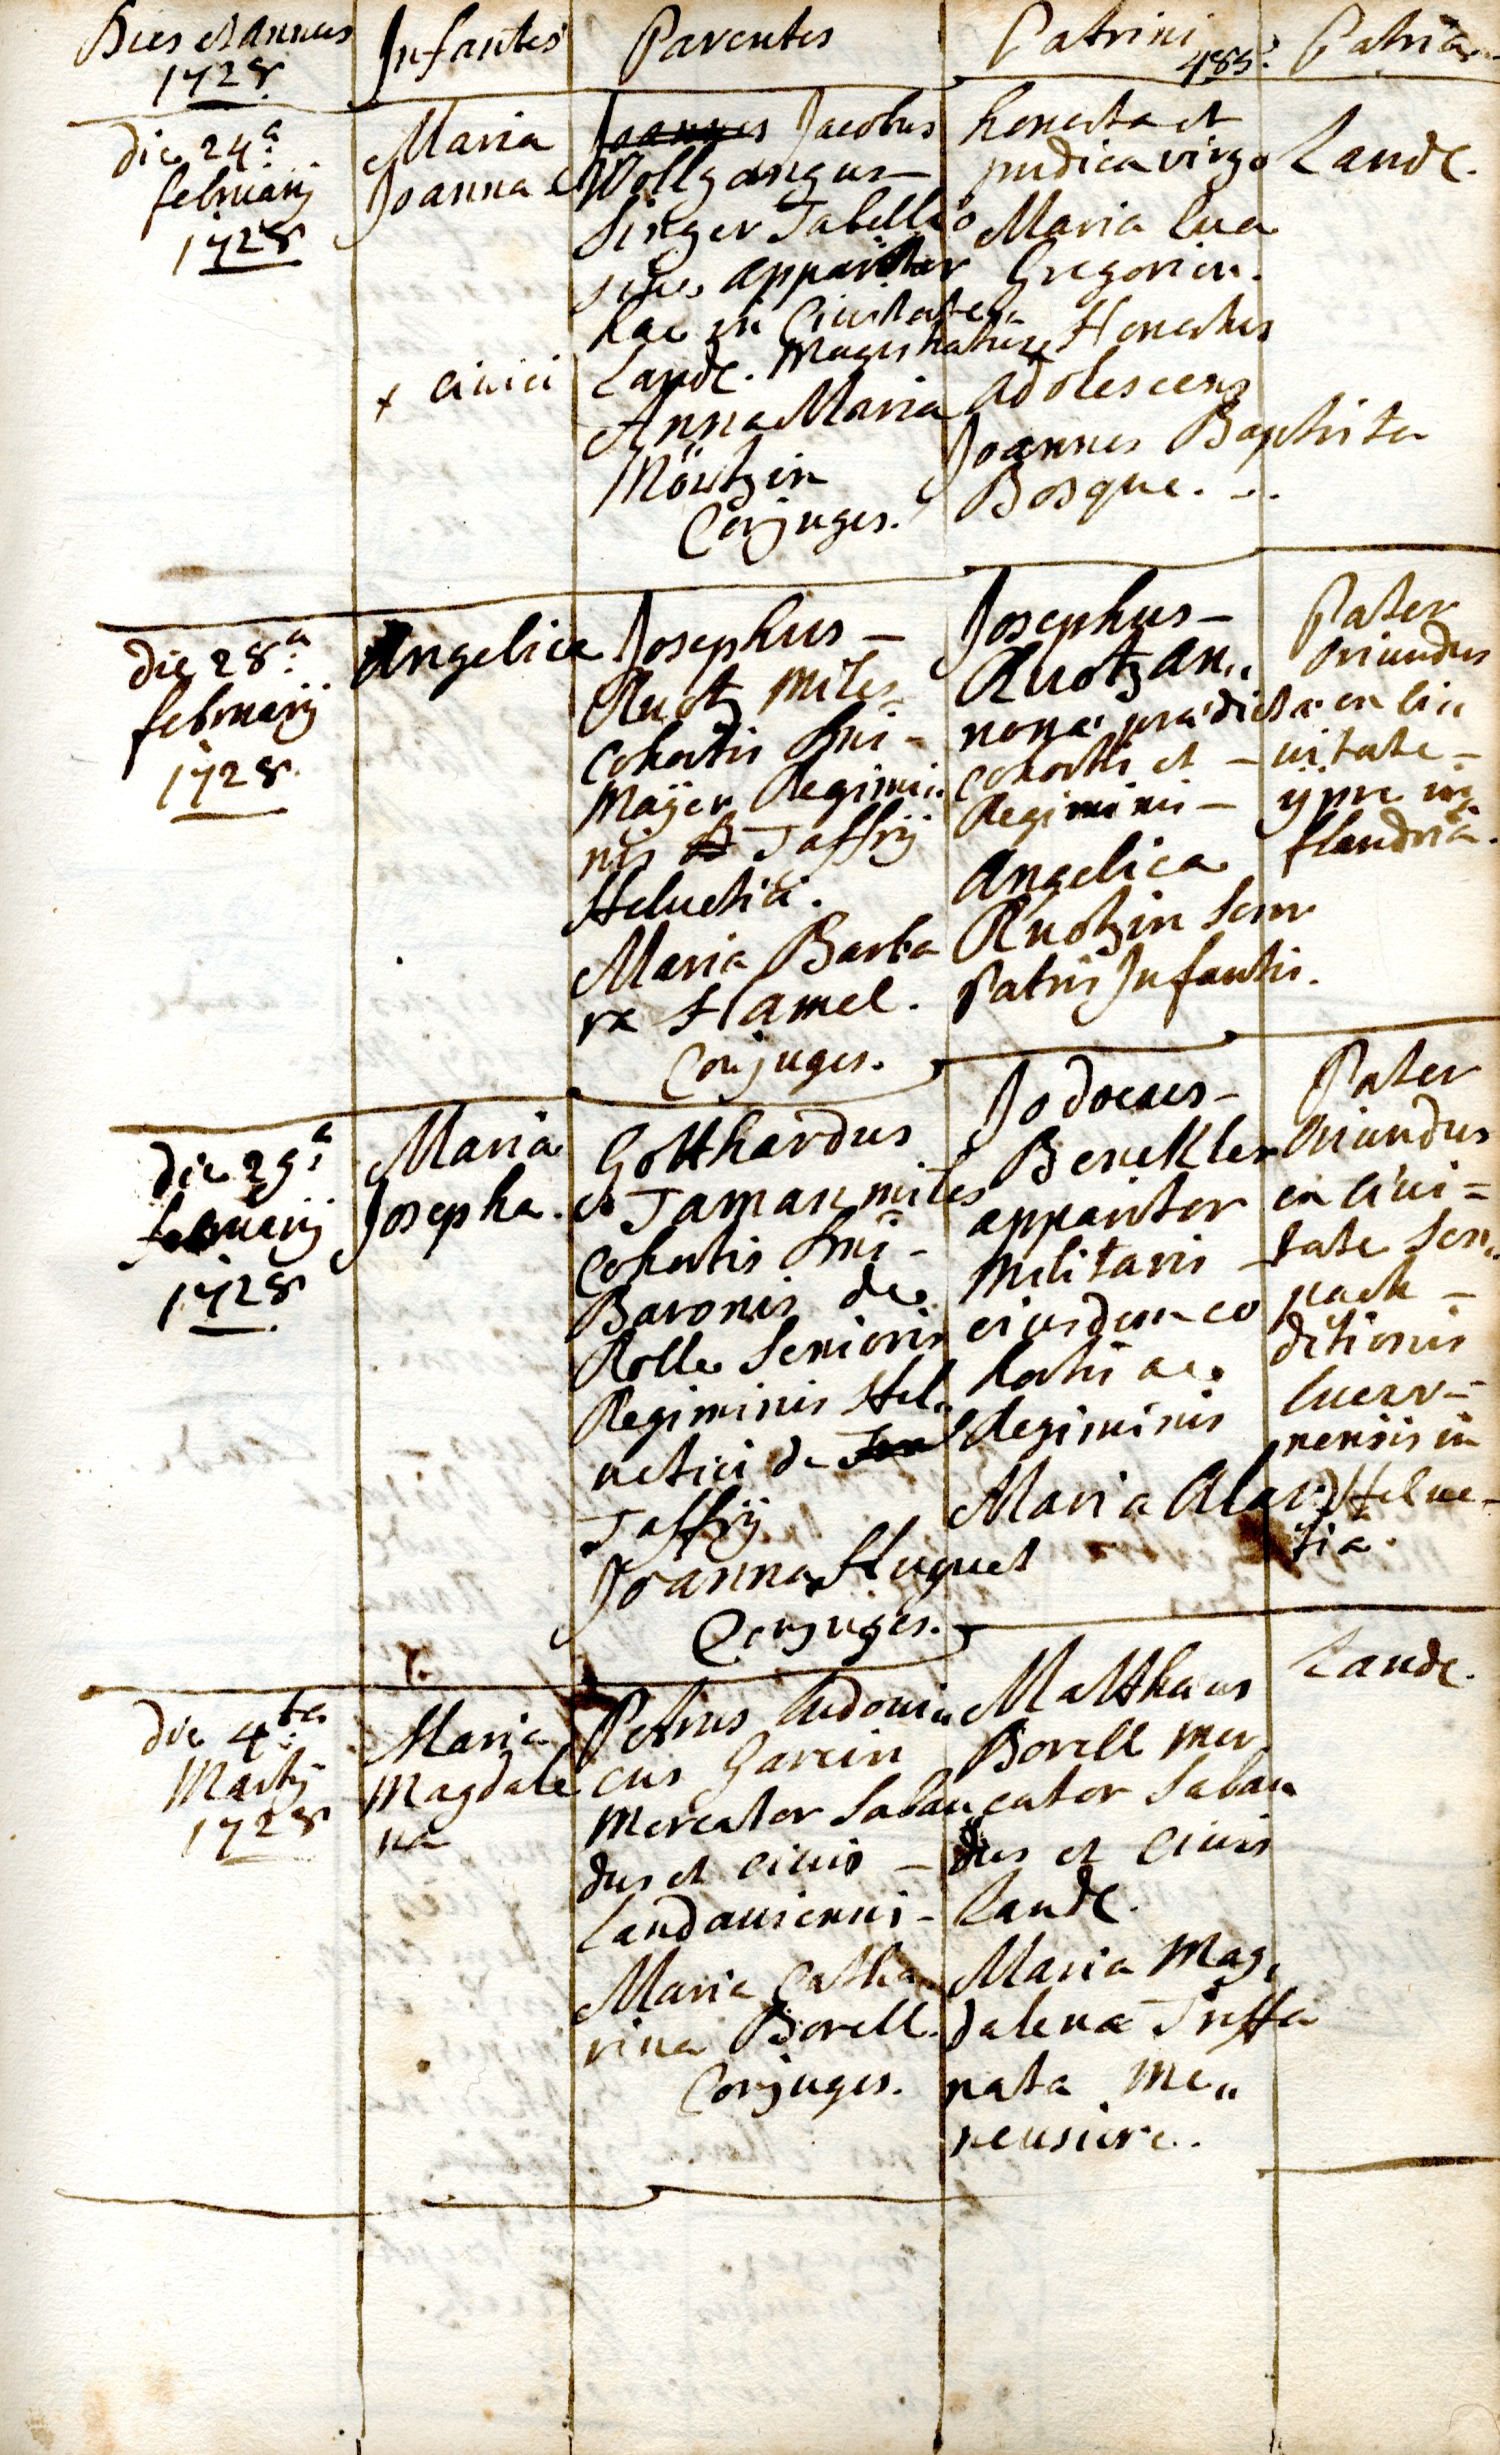 Dies et annus
1728.
Infantes
Parentes
Patrini
485.
Patria
die 24a
februarij
1728
Maria
Joanna
+ civici
Joannes Jacobus
Wollgangus
singer Tabellio
sive apparitor
hac in Civitate
Landt. Magistratus
Anna Maria
Möutzin
Conjuges.
honesta et
pudica virgo
Maria Eva
Gregorien.
Honestus
adolescens
Joannes Baptista
Bosque. -..
Landt.
die 28a
februarij
1728.
Angelica
Josephus -
Ruotz miles
Cohortis Dni -
Mayer Regimi„
nis Taffrij
Helvetici.
Maria Barba
ra Hamel.
Conjuges.
Josephus -
Ruotz an„
nonae praedictae
cohortis et -
Regiminis -
Angelica
Ruotzin Soror
Patris Infantis.
Pater
oriundus
ex Civ
vitate -
ypre in
flandria.
die 29a
februarij
1728
Maria
Josepha.
Gotthardus
Taman miles
Cohortis Dni -
Baronis de
Rolle Senioris
Regiminis Hel„
vetici de
Taffrij
Joanna Huguet
Conjuges.
Jodocus -
Benekler
apparitor
militaris -
eiusdem co
hortis ac
Regiminis
Maria Alard
Pater
Oriundus
ex Civi =
tate Sem„
pach -
ditionis
lucer -
nensis in
Helve -
tia.
die 4ta
Martij
1728
Maria
Magdale
na
Petrus ludovi„
cus Garcin
Mercator Sabau
dus et Civis -
Landaviensis -
Maria Catha
rina Borell.
Conjuges.
Matthaeus
Borell mer„
cator Sabau
dus et Civis
Landt.
Maria Mag„
dalena Treffa
nata Me„
neusiere.
Landt.